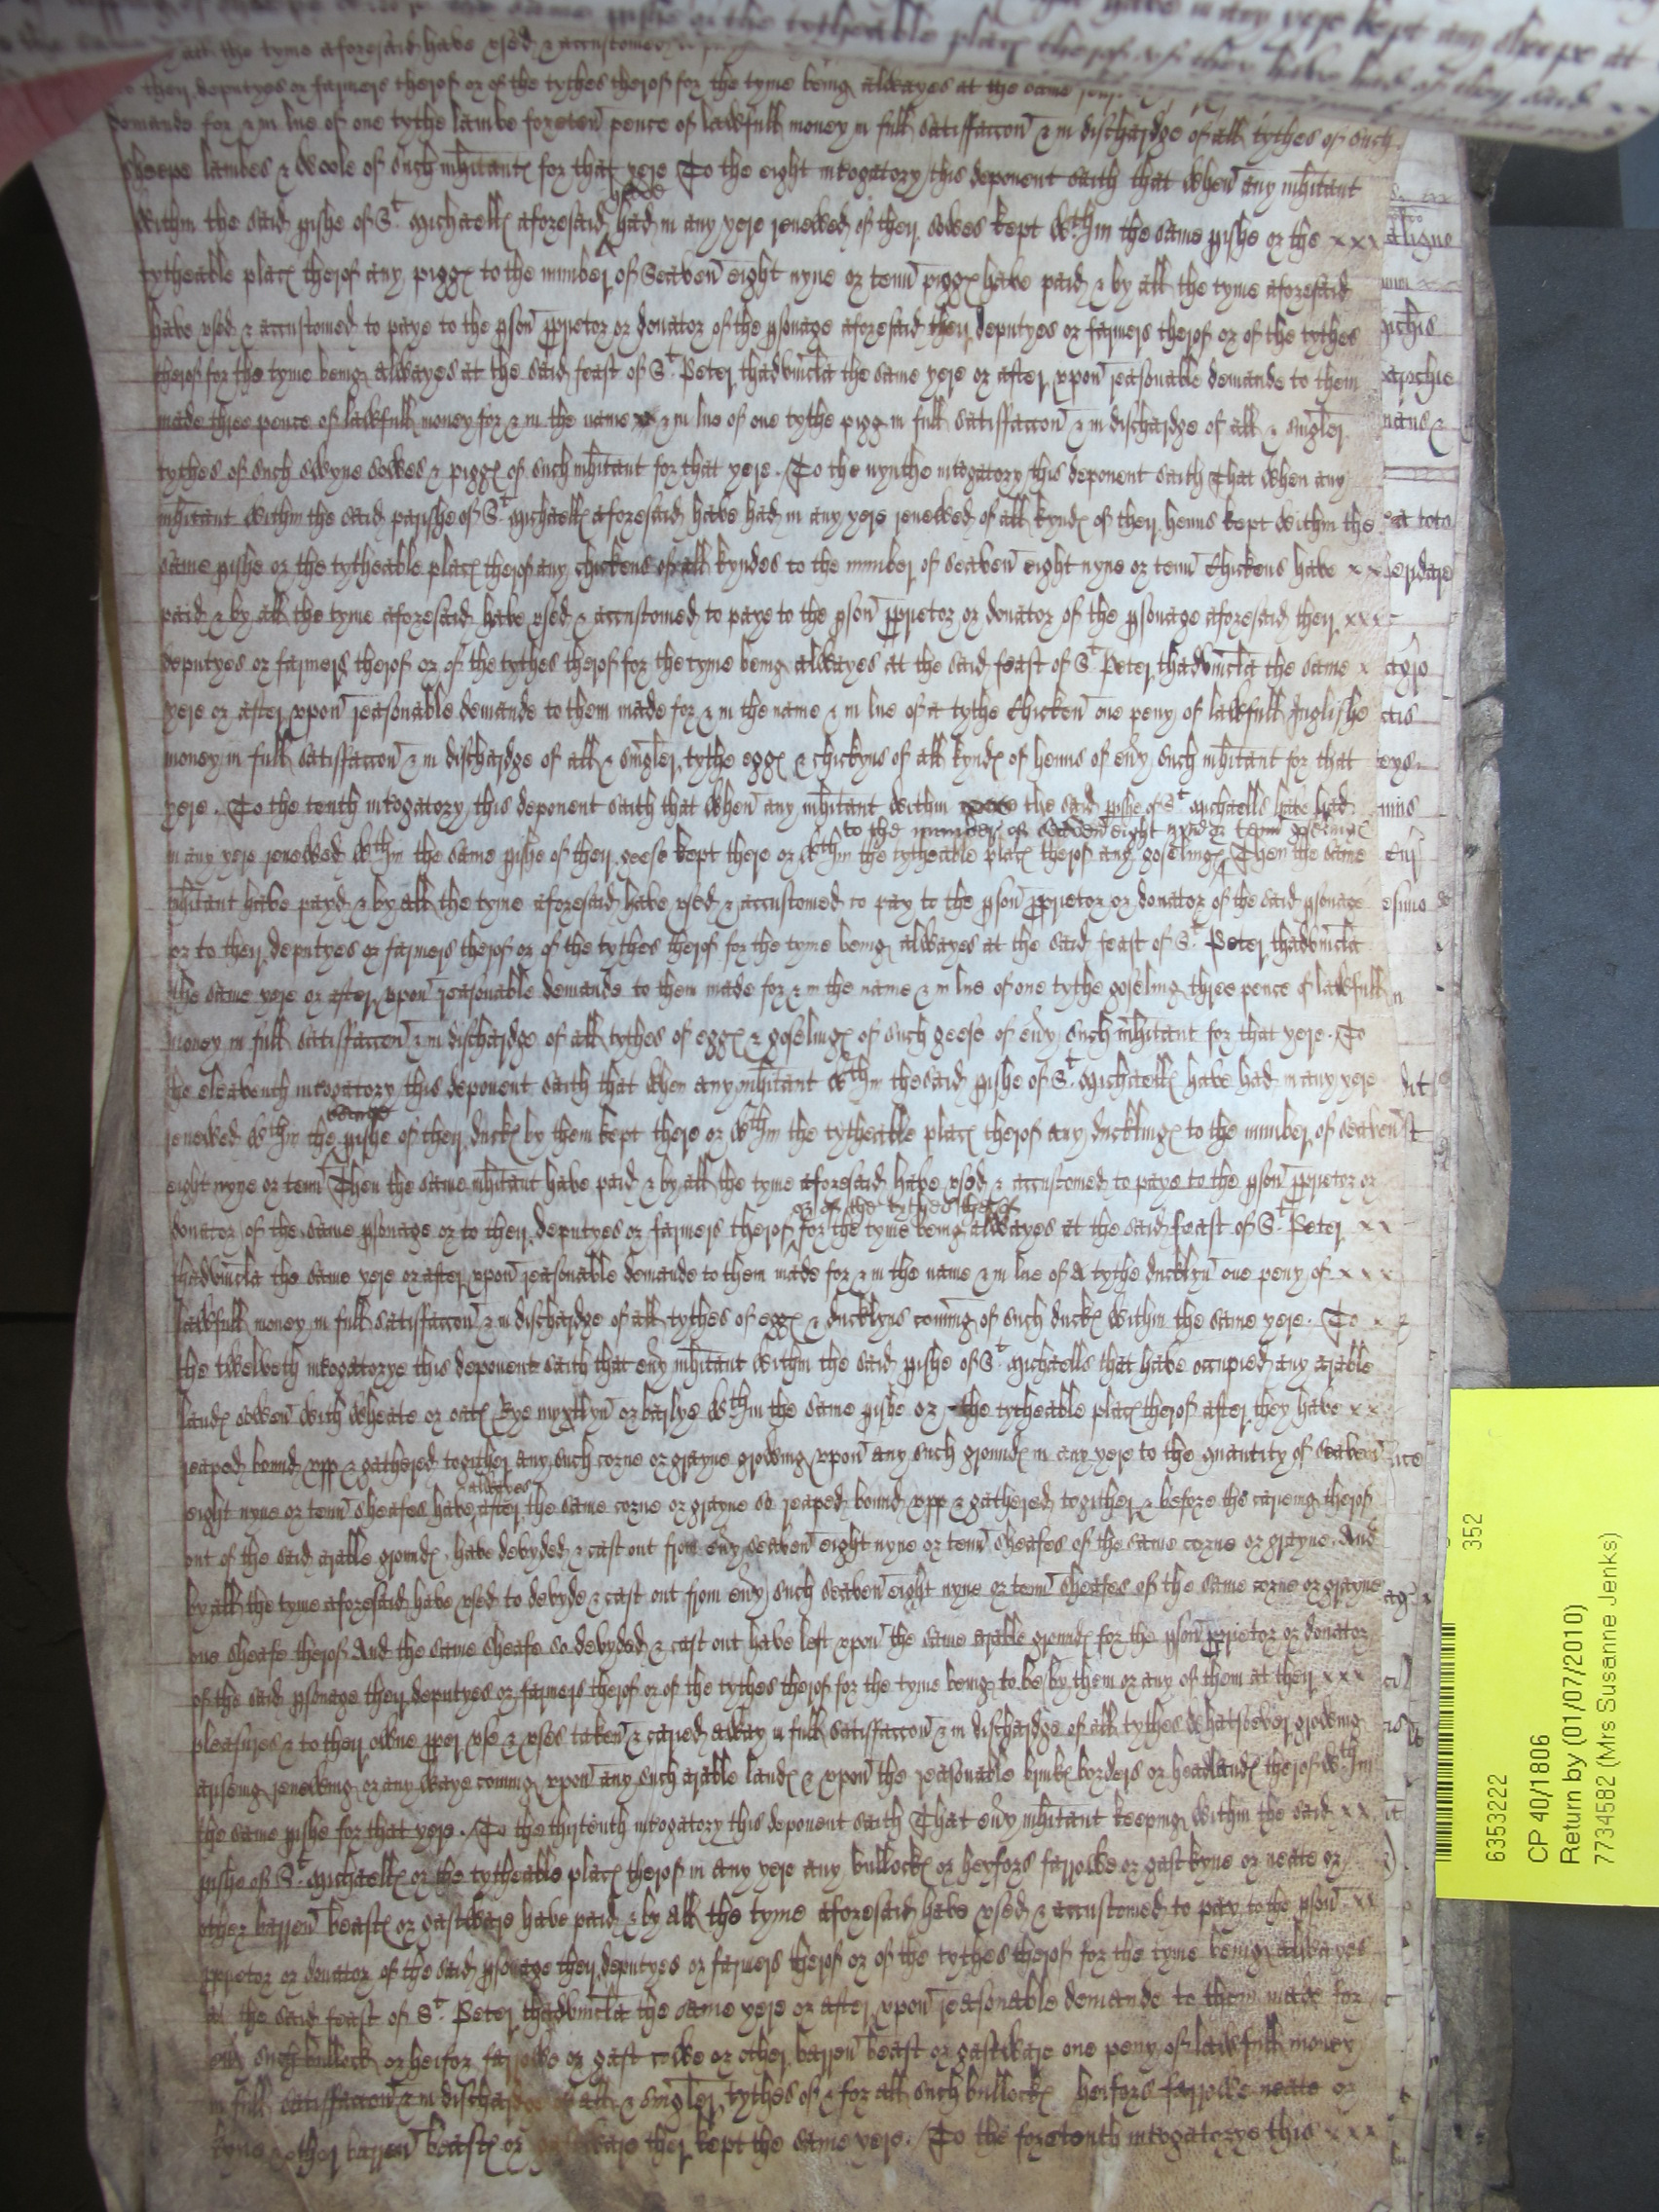 have in any yere kept any sheepe at
pishe or the tytheable plac therof yf they have had of they said xx
at the tyme aforesaid have vsed & accustomed
to their deputyes or farmers therof or of the tythes therof for the tyme being alwayes at the same
demande for & in lue of one tythe lambe foreten pence of lawfull money in full satisfaccon & in dischardge of all tythes of such
sheepe lambes & woole of such inhitant for that yere To the eight intogatory this deponent saith that when any inhitant
have
within the said pishe of St Michaell aforesaid had in any yere renewed of their sowes kept wthin the same pishe or the xxx
tytheable plac therof any pigg to the nimber of Seaven eight nyne or tenn pigg have paid & by all the tyme aforesaid
have vsed & accustomed to paye to the pson pprietor or donator of the psonage aforesaid their deputyes or farmers therof or of the tythes
therof for the tyme being alwayes at the said feast of St Peter thadvincla the same yere or after vpon reasonable demande to them
made three pence of lawfull money for & in the name & in lue of one tythe pigg in full satisfaccon & in dischardge of all & singler
tythes of such swyne sowes & pigg of such inhitant for that yere. To the nynthe intogatory this deponent saith That when any
inhitant within the said parishe of St Michaell aforesaid have had in any yere renewed of all kynd of their henns kept within the
same pishe or the tytheable plac therof any chickens of all kyndes to the nimber of seaven eight nyne or tenn Chickens have xx
paid & by all the tyme aforesaid have vsed & accustomed to paye to the pson pprietor or donator of the psonage aforesaid their xxx
deputyes or farmers therof or of the tythes therof for the tyme being alwayes at the said feast of St Peter thadvincla the same x
yere or after vpon reasonable demande to them made for & in the name & in lue of a tythe Chicken one peny of lawfull Inglishe
money in full satisfaccon & in dischardge of all & singler tythe egg & chickyns of all kynd of henns of evy such inhitant for that
yere. To the tenth intogatory this deponent saith that when any inhitant within the said pishe of St Michaells have had
to the number of seaven eight nyne or tenn goseling
in any yere renewed wthin the same pishe of their geese kept there or wthin the tytheable plac therof any goseling Then the same
inhitant have payd & by all the tyme aforesaid have vsed & accustomed to pay to the pson pprietor or donator of the said psonage
or to their deputyes or farmers therof or of the tythes therof for the tyme being alwayes at the said feast of St Peter thadvincla
the same yere or after vpon reasonable demande to them made for & in the name & in lue of one tythe goseling three pence of lawfull
money in full satisfaccon & in dischardge of all tythes of egg & goseling of such geese of evy such inhitant for that yere. To
the eleaventh intogatory this deponent saith that when any inhitant wthin the said pishe of St Michaell have had in any yere
renewed wthin the pishe of their duck by them kept there or wthin the tytheable plac therof any duckling to the nimber of seaven
eight nyne or tenn Then the same inhitant have paid & by all the tyme aforesaid have vsed & accustomed to paye to the pson pprietor or
or of the tythes therof
donator of the same psonage or to their deputyes or farmers therof for the tyme being alwayes at the said feast of St Peter xx
thadvincla the same yere or after vpon reasonable demande to them made for & in the name & in lue of A tythe ducklyn one peny of xxx
lawfull money in full satisfaccon & in dischardge of all tythes of egg & ducklyns coming of such duck within the same yere. To
the twelveth intogatorye this deponent saith that evy inhitant within the said pishe of St Michaells that have occupied any arable
land sowen with wheate or oat Rye myxtlyn or barlye wthin the same pishe or the tytheable plac therof after they have xx
reaped bound vpp & gathered together any such corne or grayne growing vpon any such ground in any yere to the quantity of seaven
alwayes
eight nyne or tenn sheafes have after the same corne or grayne so reaped bound vpp & gathered togither & before the carieing therof
out of the said arable ground have devyded & cast out from evy seaven eight nyne or tenn sheafes of the same corne or grayne. And
by all the tyme aforesaid have vsed to devyde & cast out from evy such seaven eight nyne or tenn sheafes of the same corne or grayne
one sheafe therof And the same sheafe so devyded & cast out have left vpon the same arable ground for the pson pprietor or donator
of the said psonage their deputyes or farmers therof or of the tythes therof for the tyme being to be by them or any of them at their xxx
pleasures & to their owne pper vse & vses taken & caried away in full satisfaccon & in dischardge of all tythes whatsoever growing
ariseing renewing or any waye coming vpon any such arable land & vpon the reasonable brink borders or headland therof wthin
the same pishe for that yere. To the thirtenth intogatory this deponent saith That evy inhitant keeping within the said xx
pishe of St Michaell or the tytheable plac therof in any yere any bullock or heyfors farrowe or gast kyne or neate or
other barren beast or gastware have paid & by all the tyme aforesaid have vsed & accustomed to pay to the pson xx
pprietor or donator of the said psonage their deputyes or farmers therof or of the tythes therof for the tyme being alwayes
at the said feast of St Peter thadvincla the same yere or after vpon reasonable demande to them made for
evy such bullock or heifor farrowe or gast cowe or other barren beast or gastware one peny of lawfull money
in full satisfaccon & in dischardge of all & singler tythes of & for all such bullock heifors farrowe neate or
kyne other barren beast or gastware ther kept the same yere. To the foretenth intogatorye this xxx
352
6353222
CP 40/1806
Return by (01/07/2010)
7734582 (Mrs Susanne Jenks)